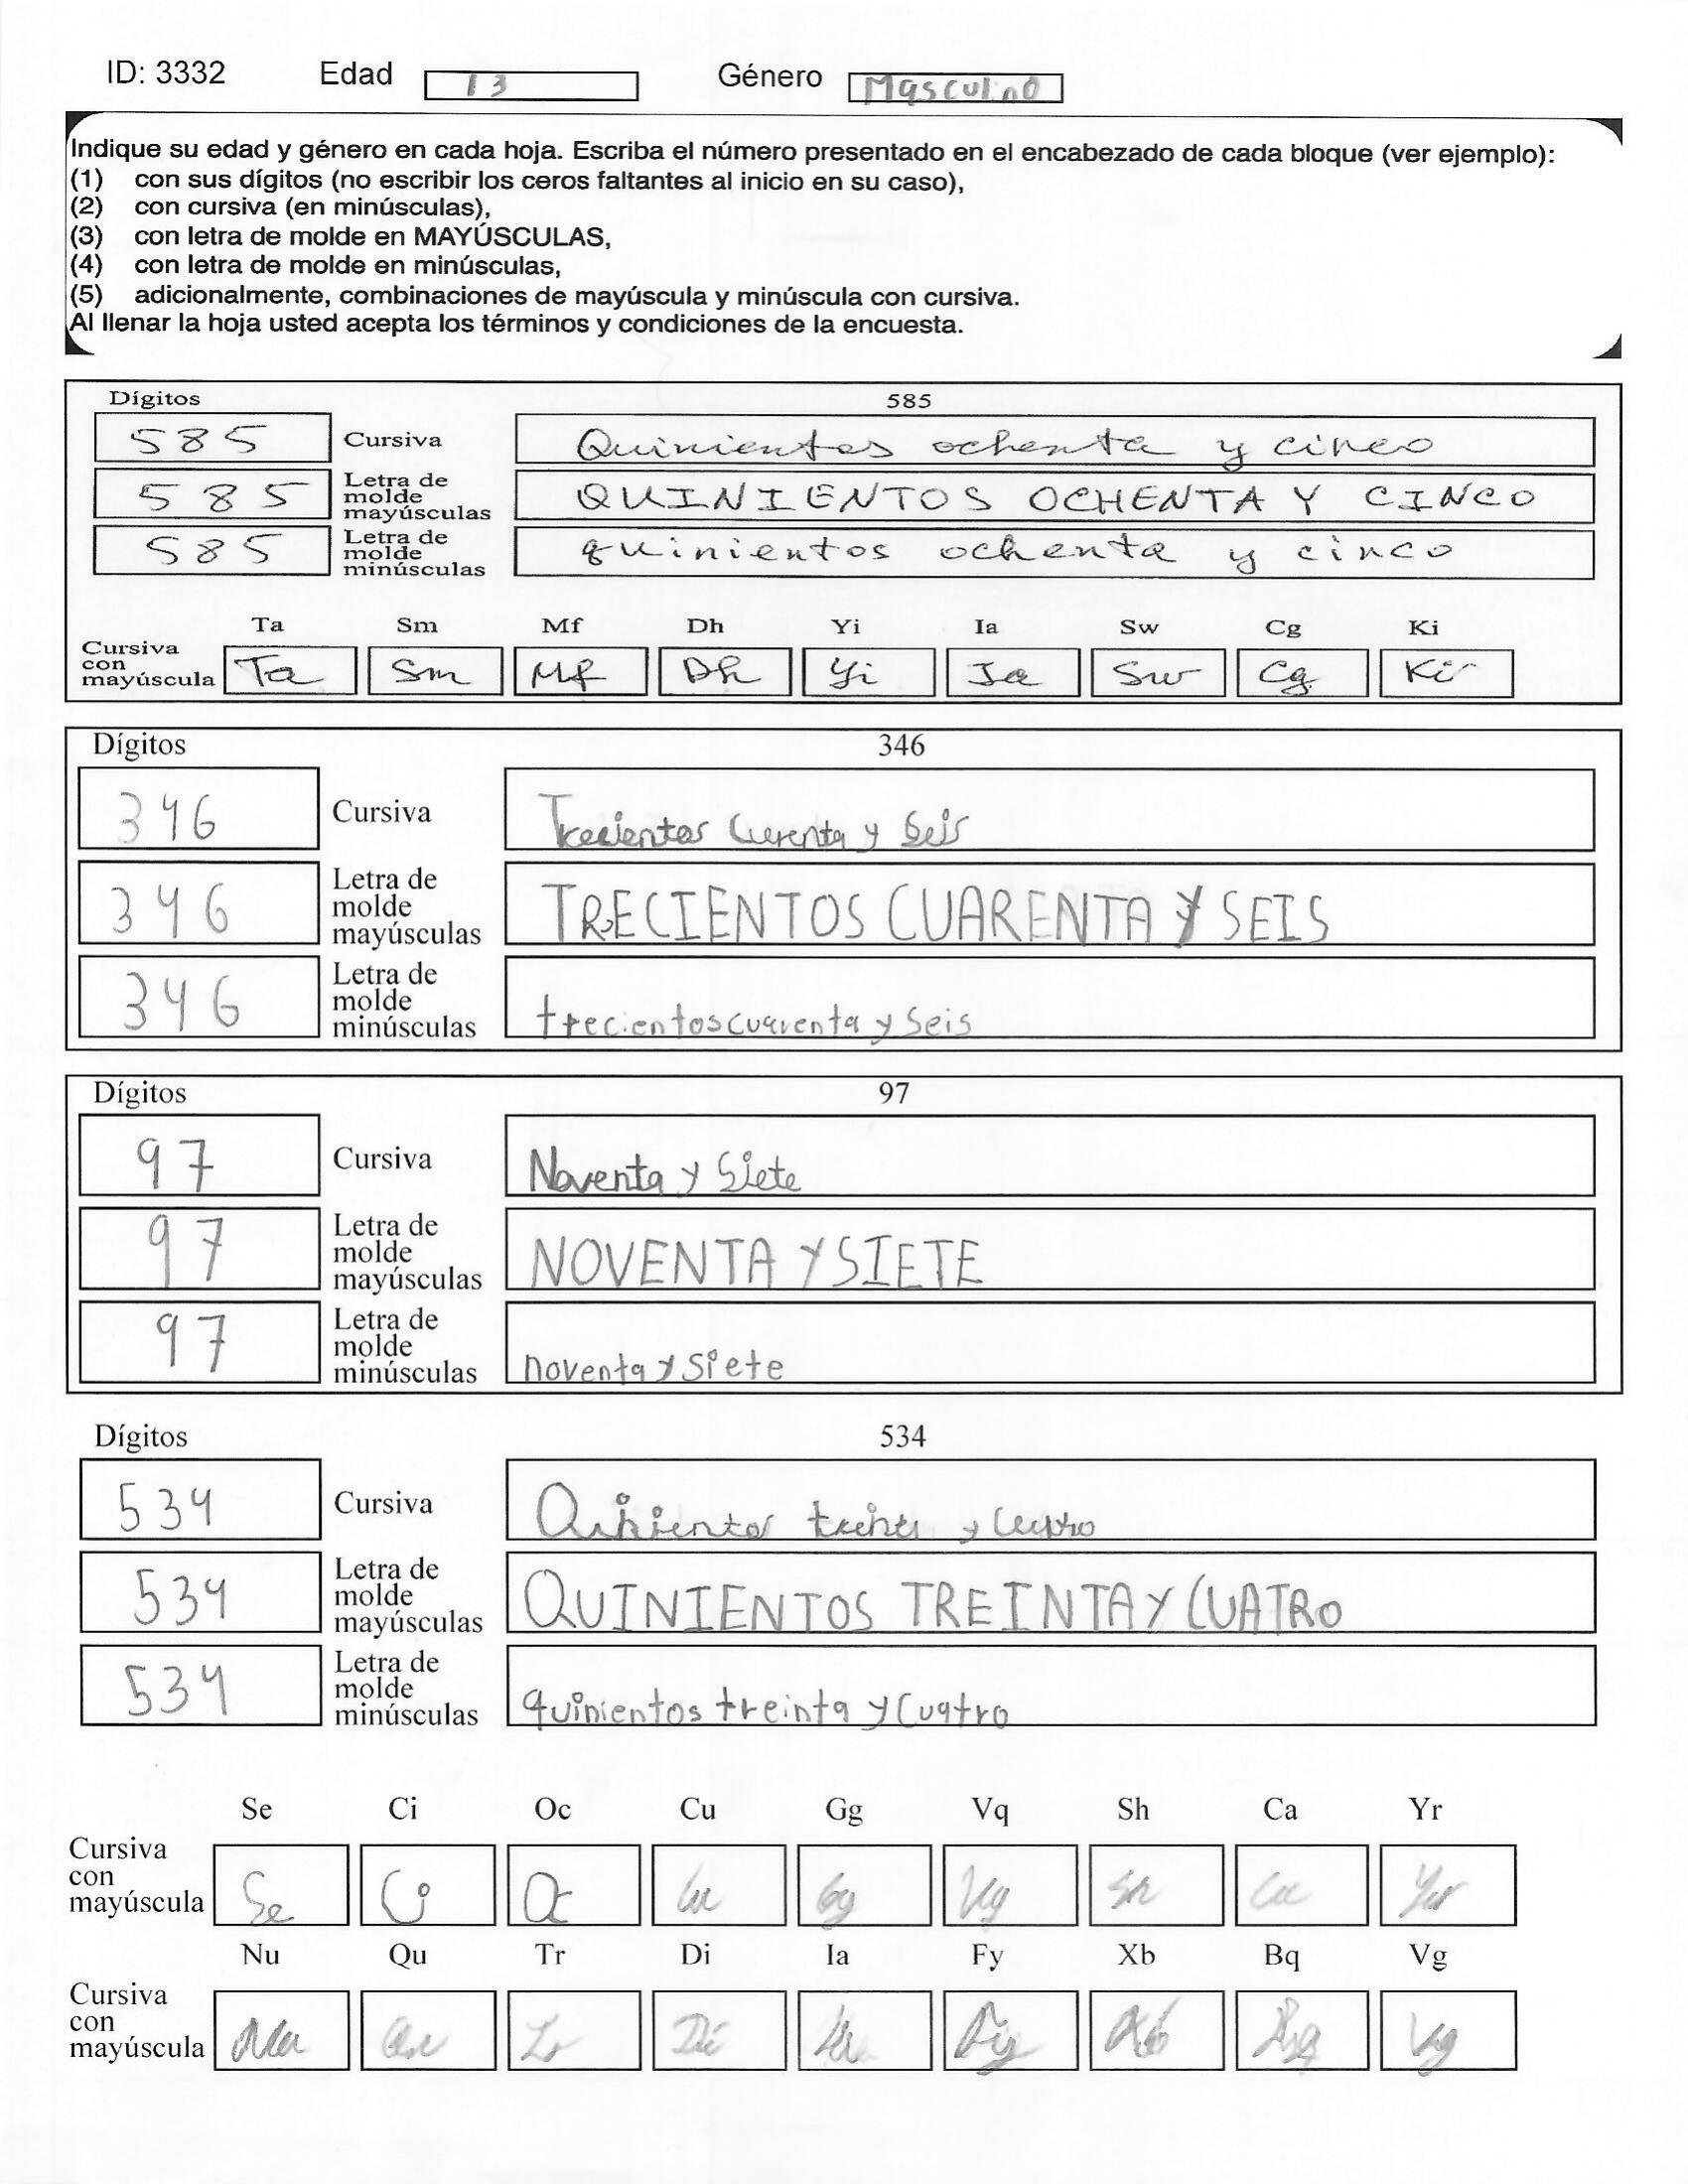 ID: 3332 Edad 13 Género Masculino
Indique su edad y género en cada hoja. Escriba el número presentado en el encabezado de cada bloque (ver ejemplo):
(1) con sus dígitos (no escribir los ceros faltantes al inicio en su caso),
(2) con cursiva (en minúsculas),
(3) con letra de molde en MAYÚSCULAS,
(4) con letra de molde en minúsculas,
(5) adicionalmente, combinaciones de mayúscula y minúscula con cursiva.
Al llenar la hoja usted acepta los términos y condiciones de la encuesta.
Dígitos 585
585 Cursiva Quinientos ochenta y cinco
585 Letra de molde mayúsculas QUINIENTOS OCHENTA Y CINCO
585 Letra de molde minúsculas quinientos ochenta y cinco
Ta Sm Mf Dh Yi Ia Sw Cg Ki
Cursiva con mayúscula Ta Sm Mf Dh Yi Ia Sw Cg Ki
Dígitos 346
346 Cursiva Trecientos Curenta y Seis
346 Letra de molde mayúsculas TRECIENTOS CUARENTA Y SEIS
346 Letra de molde minúsculas trecientos cuarenta y Seis
Dígitos 97
97 Cursiva Noventa y Siete
97 Letra de molde mayúsculas NOVENTA Y SIETE
97 Letra de molde minúsculas noventa y Siete
Dígitos 534
534 Cursiva y
534 Letra de molde mayúsculas QUINIENTOS TREINTA Y CUATRO
534 Letra de molde minúsculas quinientos treinta y Cuatro
Se Ci Oc Cu Gg Vq Sh Ca Yr
Cursiva con mayúscula Se Ci Oc Cu Gg Vg Sh Ca Yr
Nu Qu Tr Di Ia Fy Xb Bq Vg
Cursiva con mayúscula Nu Qu Tr Di Ia Fy Xb Bq Vg